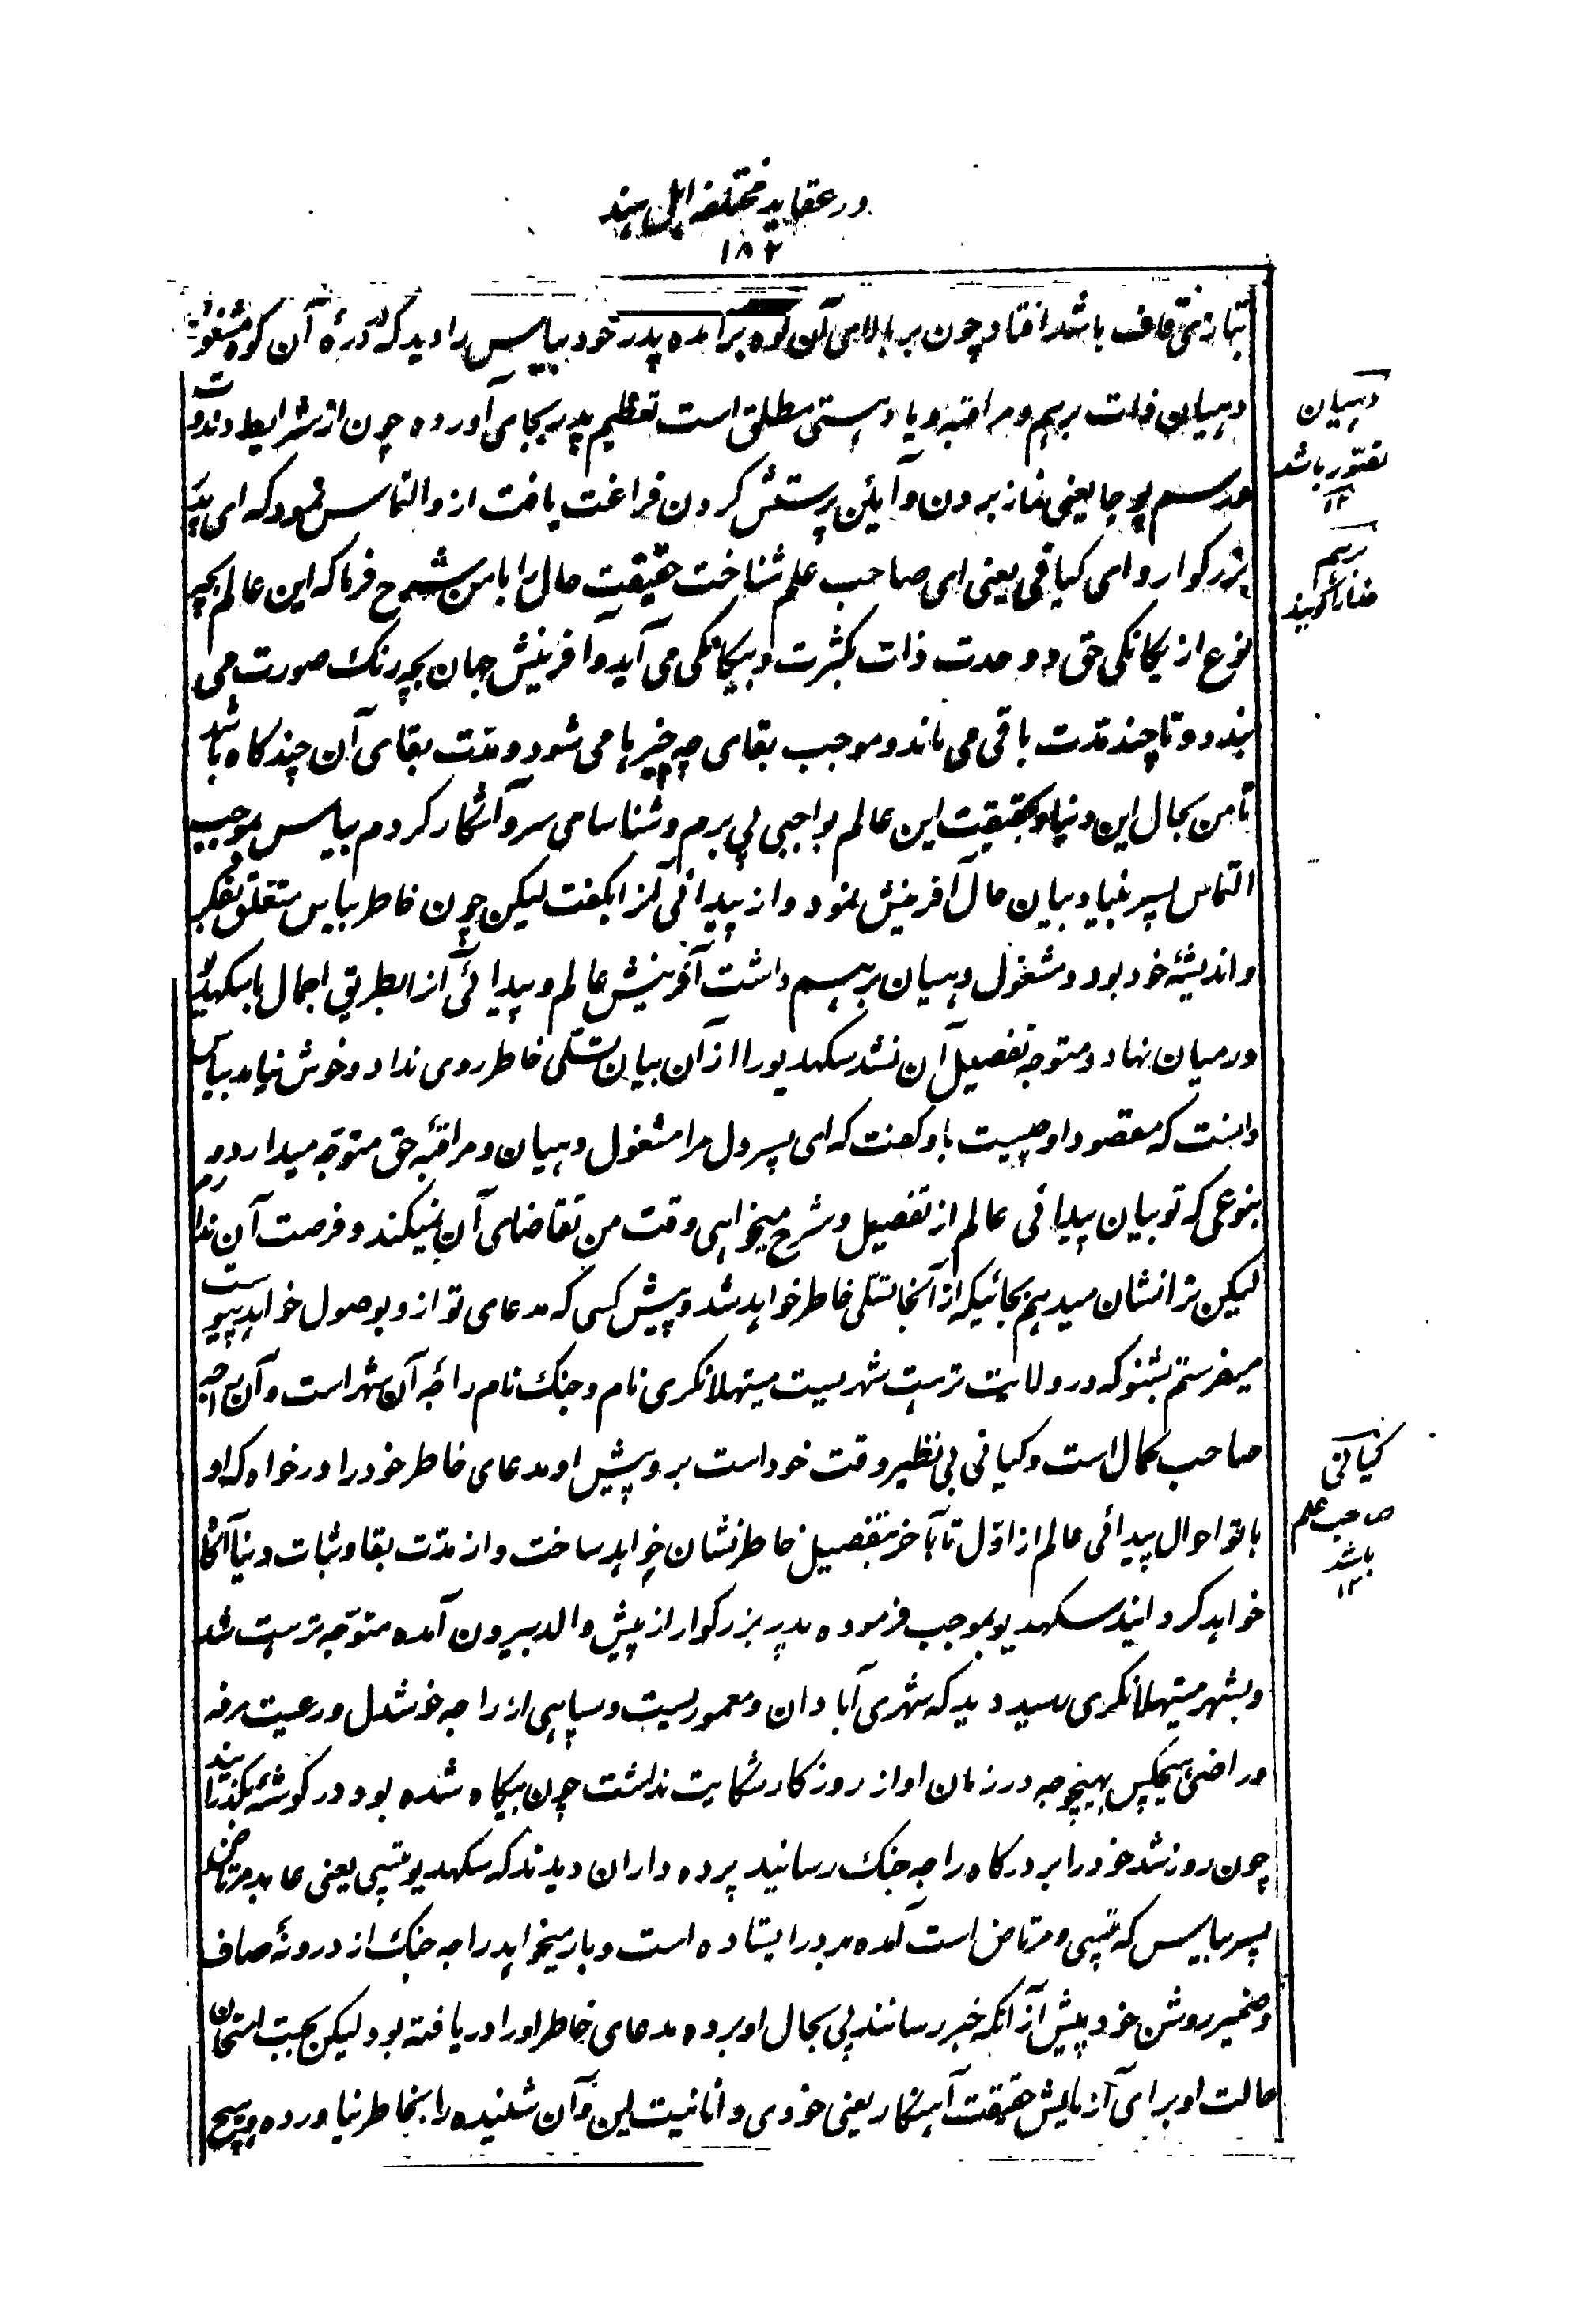 در عقاید مختلفه اهل هند
۱۸۲
بتازنی قاف باشد افتاد چون بر بالای آن کوه برآمده پدر خود بیاس را دید که در درهٔ آن کوه مشغول
دهیان ذات برهم و مراقبه و یاد هستی مطلق است تعظیم پدر بجای آورده چون از شرایط دندوت
و رسم پوجا یعنی نماز بردن و آیین پرستش کردن فراغت یافت ازو التماس نمود که ای پدر
بزرکوار و ای کیانی یعنی ای صاحب علم شناخت حقیقت حال را با من شرح فرما که این عالم بچه
نوع از یکانکی حق و وحدت ذات بکثرت و بیکانکی می آید و آفرینش جهان بچه رنک صورت می
بندد و تا چند مدت باقی می ماند و موجب بقای چه چیزها می شود و مدت بقای آن چند کاه باشد
تا من بحال این دنیا و بحقیقت این عالم بواجبی پی برم و شناسای سر و آشکار کردم بیاس بموجب
التماس پسر بنیاد بیان حال آفرینش نمود و از پیدائی آنرا بکفت لیکن چون خاطر بیاس متعلق بفکر
و اندیشهٔ خود بود و مشغول دهیان برهم داشت آفرینش عالم و پیدائی آنرا بطریق اجمال با سکهدیو
در میان نهاد و متوجه تفصیل آن نشد سکهدیو را از آن بیان تسلی خاطر روی نداد و خوش نیامد بیاس
دانست که مقصود او چیست باو کفت که ای پسر دل مرا مشغول دهیان و مراقبهٔ حق متوجه میدارد و
بنوعی که تو بیان پیدائی عالم از تفصیل و شرح میخواهی وقت من تقاضای آن نمیکند و فرصت آن ندارم
لیکن ترا نشان میدهم بجائیکه از آنجا تسلی خاطر خواهد شد و پیش کسی که مدعای تو ازو بوصول خواهد پیوست
میفرستم بشنو که در ولایت ترهت شهریست میتهلانکری نام و جنک نام راجهٔ آن شهر است و آن راجه
صاحب کمال است و کیانی بی نظیر وقت خود است برو پیش او مدعای خاطر خود را درخواه که او
با تو احوال پیدائی عالم از اوّل تا بآخر بتفصیل خاطر نشان خواهد ساخت و از مدّت بقا و ثبات دنیا آکاه
خواهد کردانید سکهدیو بموجب فرموده پدر بزرکوار از پیش والد بیرون آمده متوّجه ترهت شد
و بشهر میتهلانکری رسید دید که شهری آبادان و معموریست و سپاهی از راجه خوشدل و رعیت مرفه
و راضی هیچکس بهیچوجه در زمان او از روزکار شکایت نداشت چون بیکاه شده بود در کوشهٔ بکذرانید
چون روز شد خود را بر درکاه راجه جنک رسانید پرده داران دیدند که سکهدیو تپسی یعنی عابد مرتاض
پسر بیاس که تپسی و مرتاض است آمده بر در ایستاده است و بار میخواهد راجه جنک از درونهٔ صاف
و ضمیر روشن خود پیش از آنکه خبر رسانند پی بحال او برده مدعای خاطر او را دریافته بود لیکن بجهت امتحان
حالت او برای آزمایش حقیقت آهنکار یعنی خودی و انانیت این و آن شنیده را بخاطر نیاورده و هیچ
دهیان
تصّور باشد
۱۲
برهم
خدا را کویند
کیانی
صاحب علم
باشد
۱۲